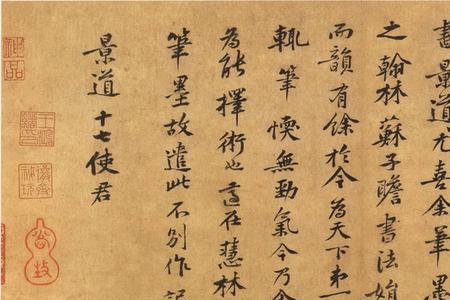 書景道尤喜余筆墨
之翰林蘇子瞻書法娟
而韻有餘於今為天下弟一
輒筆愞無勁氣今乃
為能擇術也適在慧林
筆墨故遣此不別作記
景道十七使君
神品